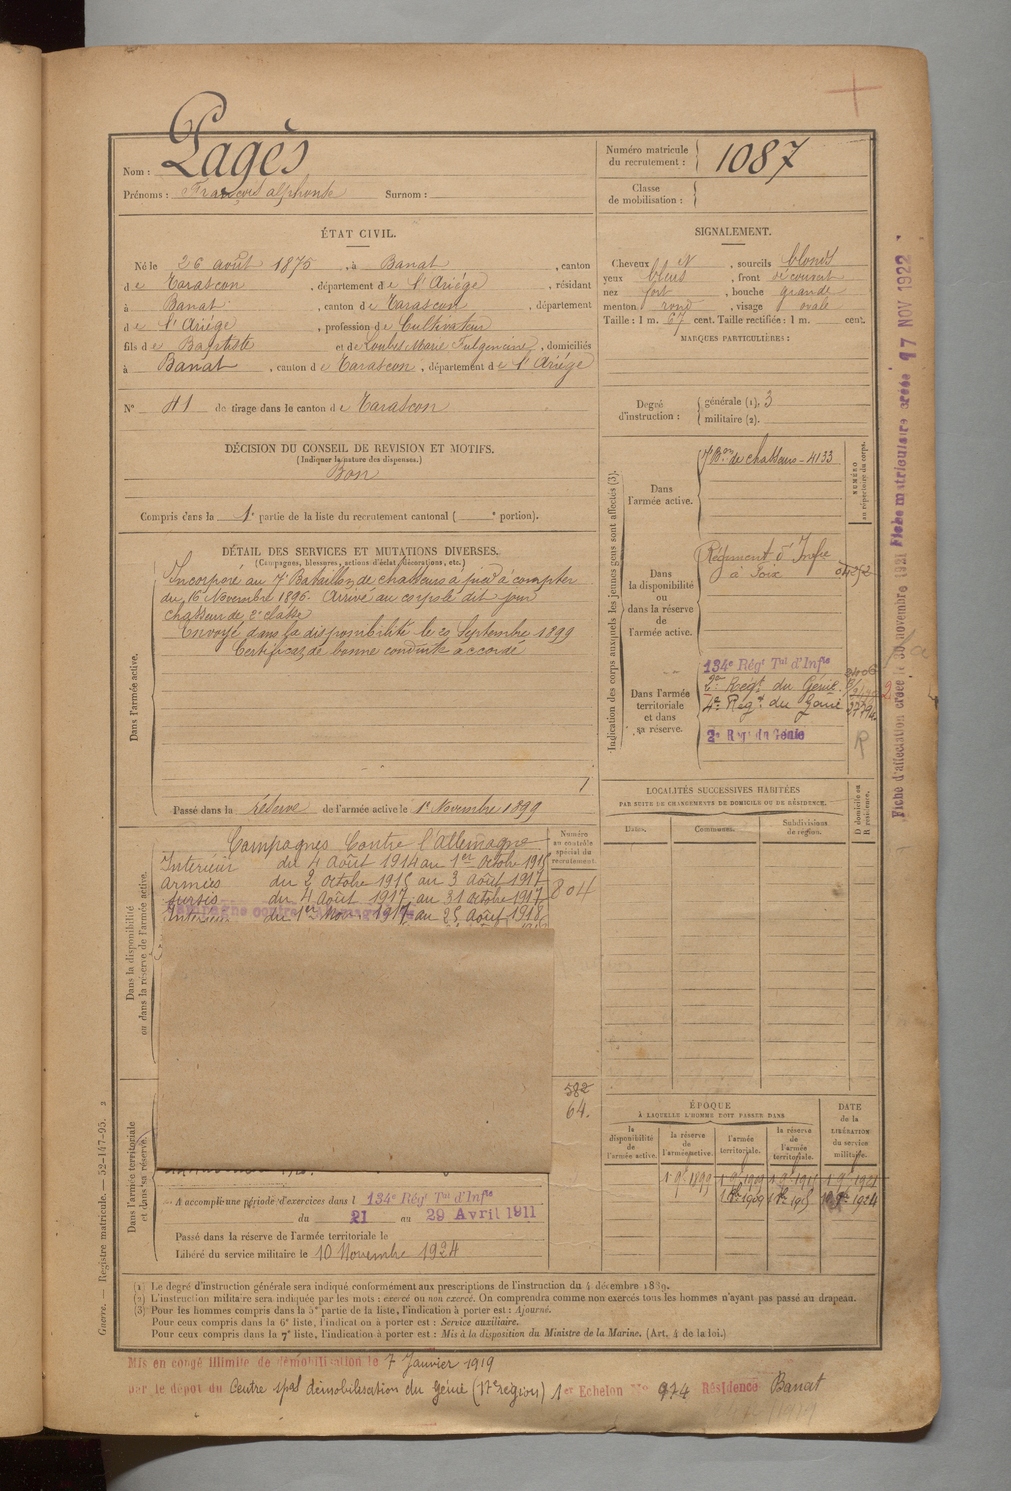 Nom : Pagès
Prénoms : François alphonse Surnom :
Numéro matricule du recrutement : 1087
Classe de mobilisation :
ÉTAT CIVIL.
Né le 26 août 1875, à Banat, canton
de Tarascon, département de l'Ariége, résidant
à Banat, canton de Tarascon, département
de l'Ariége, profession de Cultivateur
fils de Baptiste et de Marie, domiciliés
à Banat, canton de Tarascon, département de l'Ariége
N° 41 de tirage dans le canton de Tarascon
SIGNALEMENT.
Cheveux N, sourcils blonds
yeux bleus, front découvert
nez fort, bouche grande
menton rond, visage ovale
Taille : 1 m. 67 cent. Taille rectifiée : 1 m. cent.
MARQUES PARTICULIÈRES :
Degré d'instruction : générale (1). 3
militaire (2).
DÉCISION DU CONSEIL DE REVISION ET MOTIFS.
(Indiquer la nature des dispenses.)
Bon
Compris dans la 1e partie de la liste du recrutement cantonal ( e portion).
DÉTAIL DES SERVICES ET MUTATIONS DIVERSES.
(Campagnes, blessures, actions d'éclat, décorations, etc.)
Dans l'armée active.
Incorporé au 7e Bataillon de chasseurs à pied à compter
du 16 Novembre 1896. Arrivé au corps le dit jour
chasseur de 2e classe
Envoyé dans la disponibilité le 20 Septembre 1899
Certificat de bonne conduite accordé
Passé dans la réserve de l'armée active le 1er Novembre 1899
Indication des corps auxquels les jeunes gens sont affectés (3).
Dans l'armée active.
7e Bon de chasseurs - 4133
NUMÉRO au répertoire du corps.
Dans la disponibilité ou dans la réserve de l'armée active.
Régiment d'Infie
à Foix
Dans l'armée territoriale et dans sa réserve.
134e Régt Tal d'Infie
2e Régt du Génie
4e Régt du Génie
2e Régt du Génie
R
LOCALITÉS SUCCESSIVES HABITÉES
PAR SUITE DE CHANGEMENTS DE DOMICILE OU DE RÉSIDENCE.
D domicile ou R résidence.
Dates. Communes. Subdivisions de région.
Dans la disponibilité ou dans la réserve de l'armée active.
Campagnes Contre l'Allemagne
Intérieur du 4 Août 1914 au 1er Octobre 1915
armées du 2 Octobre 1915 au 3 Août 1917
sursis du 4 Août 1917 au 31 octobre 1917
Intérieur du 1er Nov. 1917 au 25 Août 1918
Numéro au contrôle spécial du recrutement.
804
582
64.
Dans l'armée territoriale et dans sa réserve.
A accompli une période d'exercices dans l 134e Régt Tal d'Infie
du 21 au 29 Avril 1911
Passé dans la réserve de l'armée territoriale le
Libéré du service militaire le 10 Novembre 1924
ÉPOQUE
À LAQUELLE L'HOMME DOIT PASSER DANS
la disponibilité de l'armée active.
la réserve de l'armée active.
l'armée territoriale.
la réserve de l'armée territoriale.
DATE de la LIBÉRATION du service militaire.
(1) Le degré d'instruction générale sera indiqué conformément aux prescriptions de l'instruction du 4 décembre 1889.
(2) L'instruction militaire sera indiquée par les mots : exercé ou non exercé. On comprendra comme non exercés tous les hommes n'ayant pas passé au drapeau.
(3) Pour les hommes compris dans la 5e partie de la liste, l'indication à porter est : Ajourné.
Pour ceux compris dans la 6e liste, l'indication à porter est : Service auxiliaire.
Pour ceux compris dans la 7e liste, l'indication à porter est : Mis à la disposition du Ministre de la Marine. (Art. 4 de la loi.)
Mis en congé illimité de démobilisation le 7 Janvier 1919
par le dépôt du Centre spal démobilisation du génie (17e région) 1er Echelon N° 974 Résidence Banat
Guerre. — Registre matricule. — 52-147-95. 2
Fiche d'affectation créée le 30 novembre 1921 Fiche matriculaire créée 17 NOV 1922